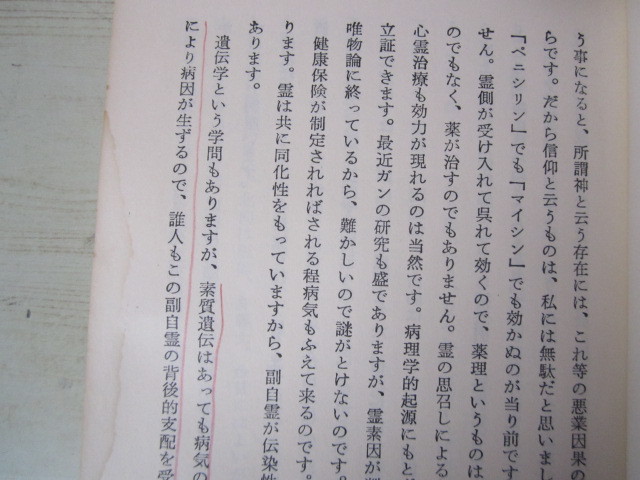 う事になると、所謂神と云う存在には、これ等の悪業因果の
らです。だから信仰と云うものは、私には無駄だと思いまし
「ペニシリン」でも「マイシン」でも効かぬのが当り前です
せん。霊側が受け入れて呉れて効くので、薬理というものは
のでもなく、薬が治すのでもありません。霊の思召しによる
心霊治療も効力が現れるのは当然です。病理学的起源にもと
立証できます。最近ガンの研究も盛でありますが、霊素因が
唯物論に終っているから、難かしいので謎がとけないのです。
健康保険が制定されればされる程病気もふえて来るのです。
ります。霊は共に同化性をもっていますから、副自霊が伝染性
あります。
遺伝学という学問もありますが、素質遺伝はあっても病気の
により病因が生ずるので、誰人もこの副自霊の背後的支配を受